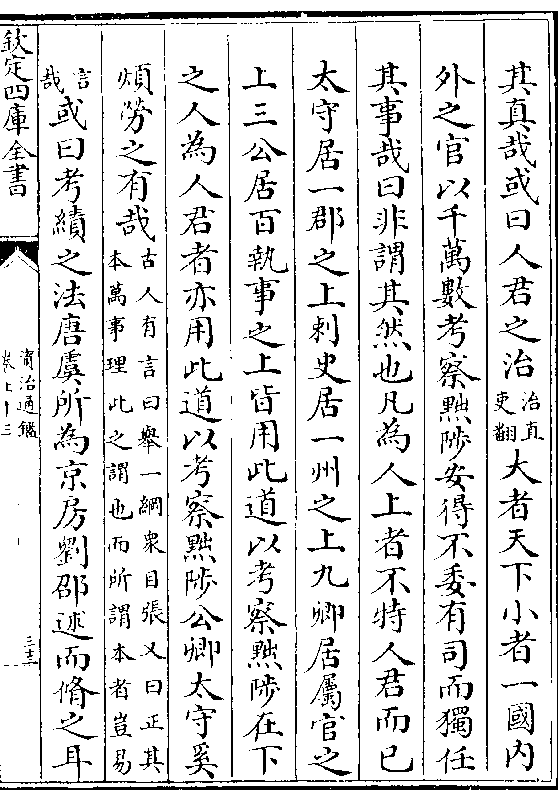 其真哉或曰人君之治治直吏翻大者天下小者一國内
外之官以千萬數考察黜陟安得不委有司而獨任
其事哉曰非謂其然也凡為人上者不特人君而已
太守居一郡之上刺史居一州之上九卿居屬官之
上三公居百執事之上皆用此道以考察黜陟在下
之人為人君者亦用此道以考察黜陟公卿太守奚
煩勞之有哉古人有言曰舉一綱衆目張又曰正其本萬事理此之謂也而所謂本者豈易
言哉或曰考績之法唐虞所為京房劉邵述而脩之耳
欽定四庫全書
資治通鑑
卷七十三
三十三